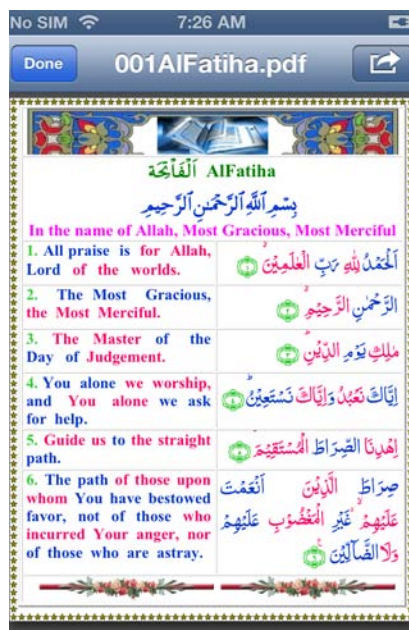 No SIM 7:26 AM
Done 001AlFatiha.pdf
اَلْفَاتِحَة AlFatiha
بِسْمِ اللّٰهِ الرَّحْمٰنِ الرَّحِيْمِ
In the name of Allah, Most Gracious, Most Merciful
1. All praise is for Allah,
Lord of the worlds.
اَلْحَمْدُ لِلّٰهِ رَبِّ الْعٰلَمِيْنَ ۙ ١
2. The Most Gracious,
the Most Merciful.
الرَّحْمٰنِ الرَّحِيْمِ ۙ ٢
3. The Master of the
Day of Judgement.
مٰلِكِ يَوْمِ الدِّيْنِ ۗ ٣
4. You alone we worship,
and You alone we ask
for help.
اِيَّاكَ نَعْبُدُ وَاِيَّاكَ نَسْتَعِيْنُ ۗ ٤
5. Guide us to the straight
path.
اِهْدِنَا الصِّرَاطَ الْمُسْتَقِيْمَ ۙ ٥
6. The path of those upon
whom You have bestowed
favor, not of those who
incurred Your anger, nor
of those who are astray.
صِرَاطَ الَّذِيْنَ اَنْعَمْتَ
عَلَيْهِمْ ۙ غَيْرِ الْمَغْضُوْبِ عَلَيْهِمْ
وَلَا الضَّآلِّيْنَ ۚ ٦